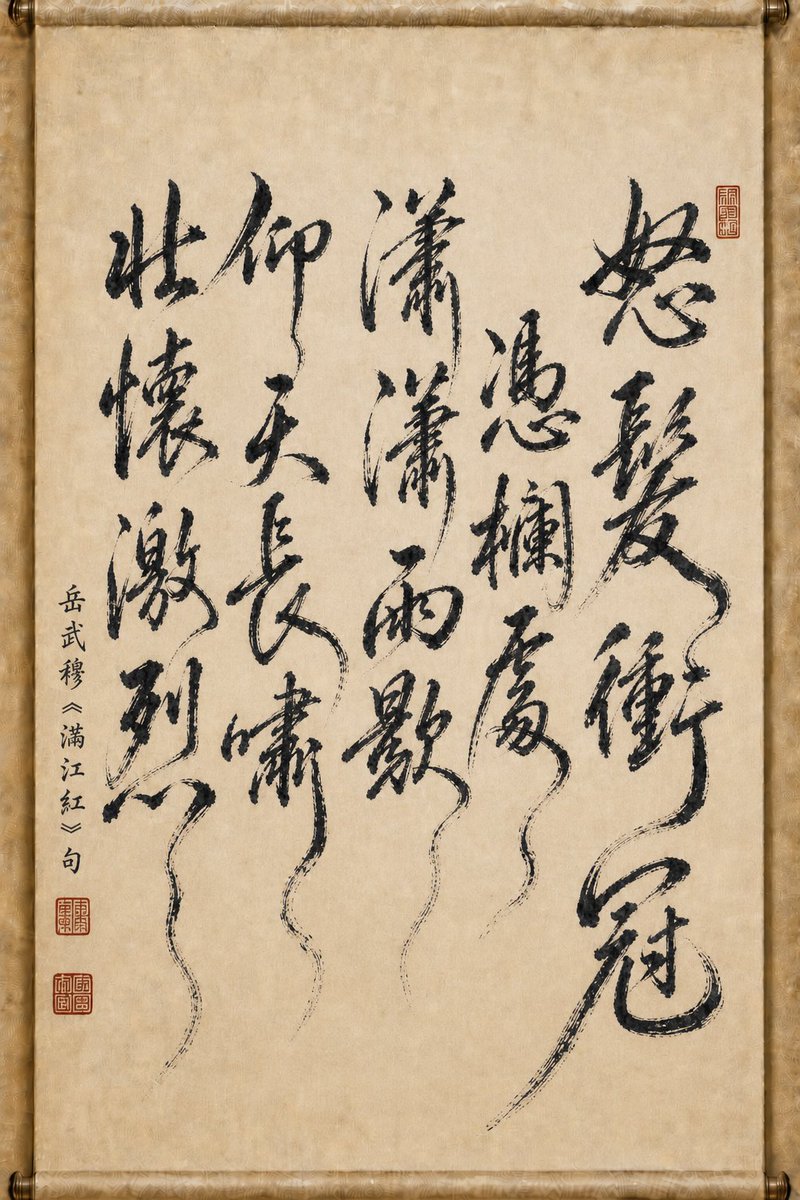 怒髮衝冠
憑欄處
瀟瀟雨歇
仰天長嘯
壯懷激烈
岳武穆《滿江紅》句